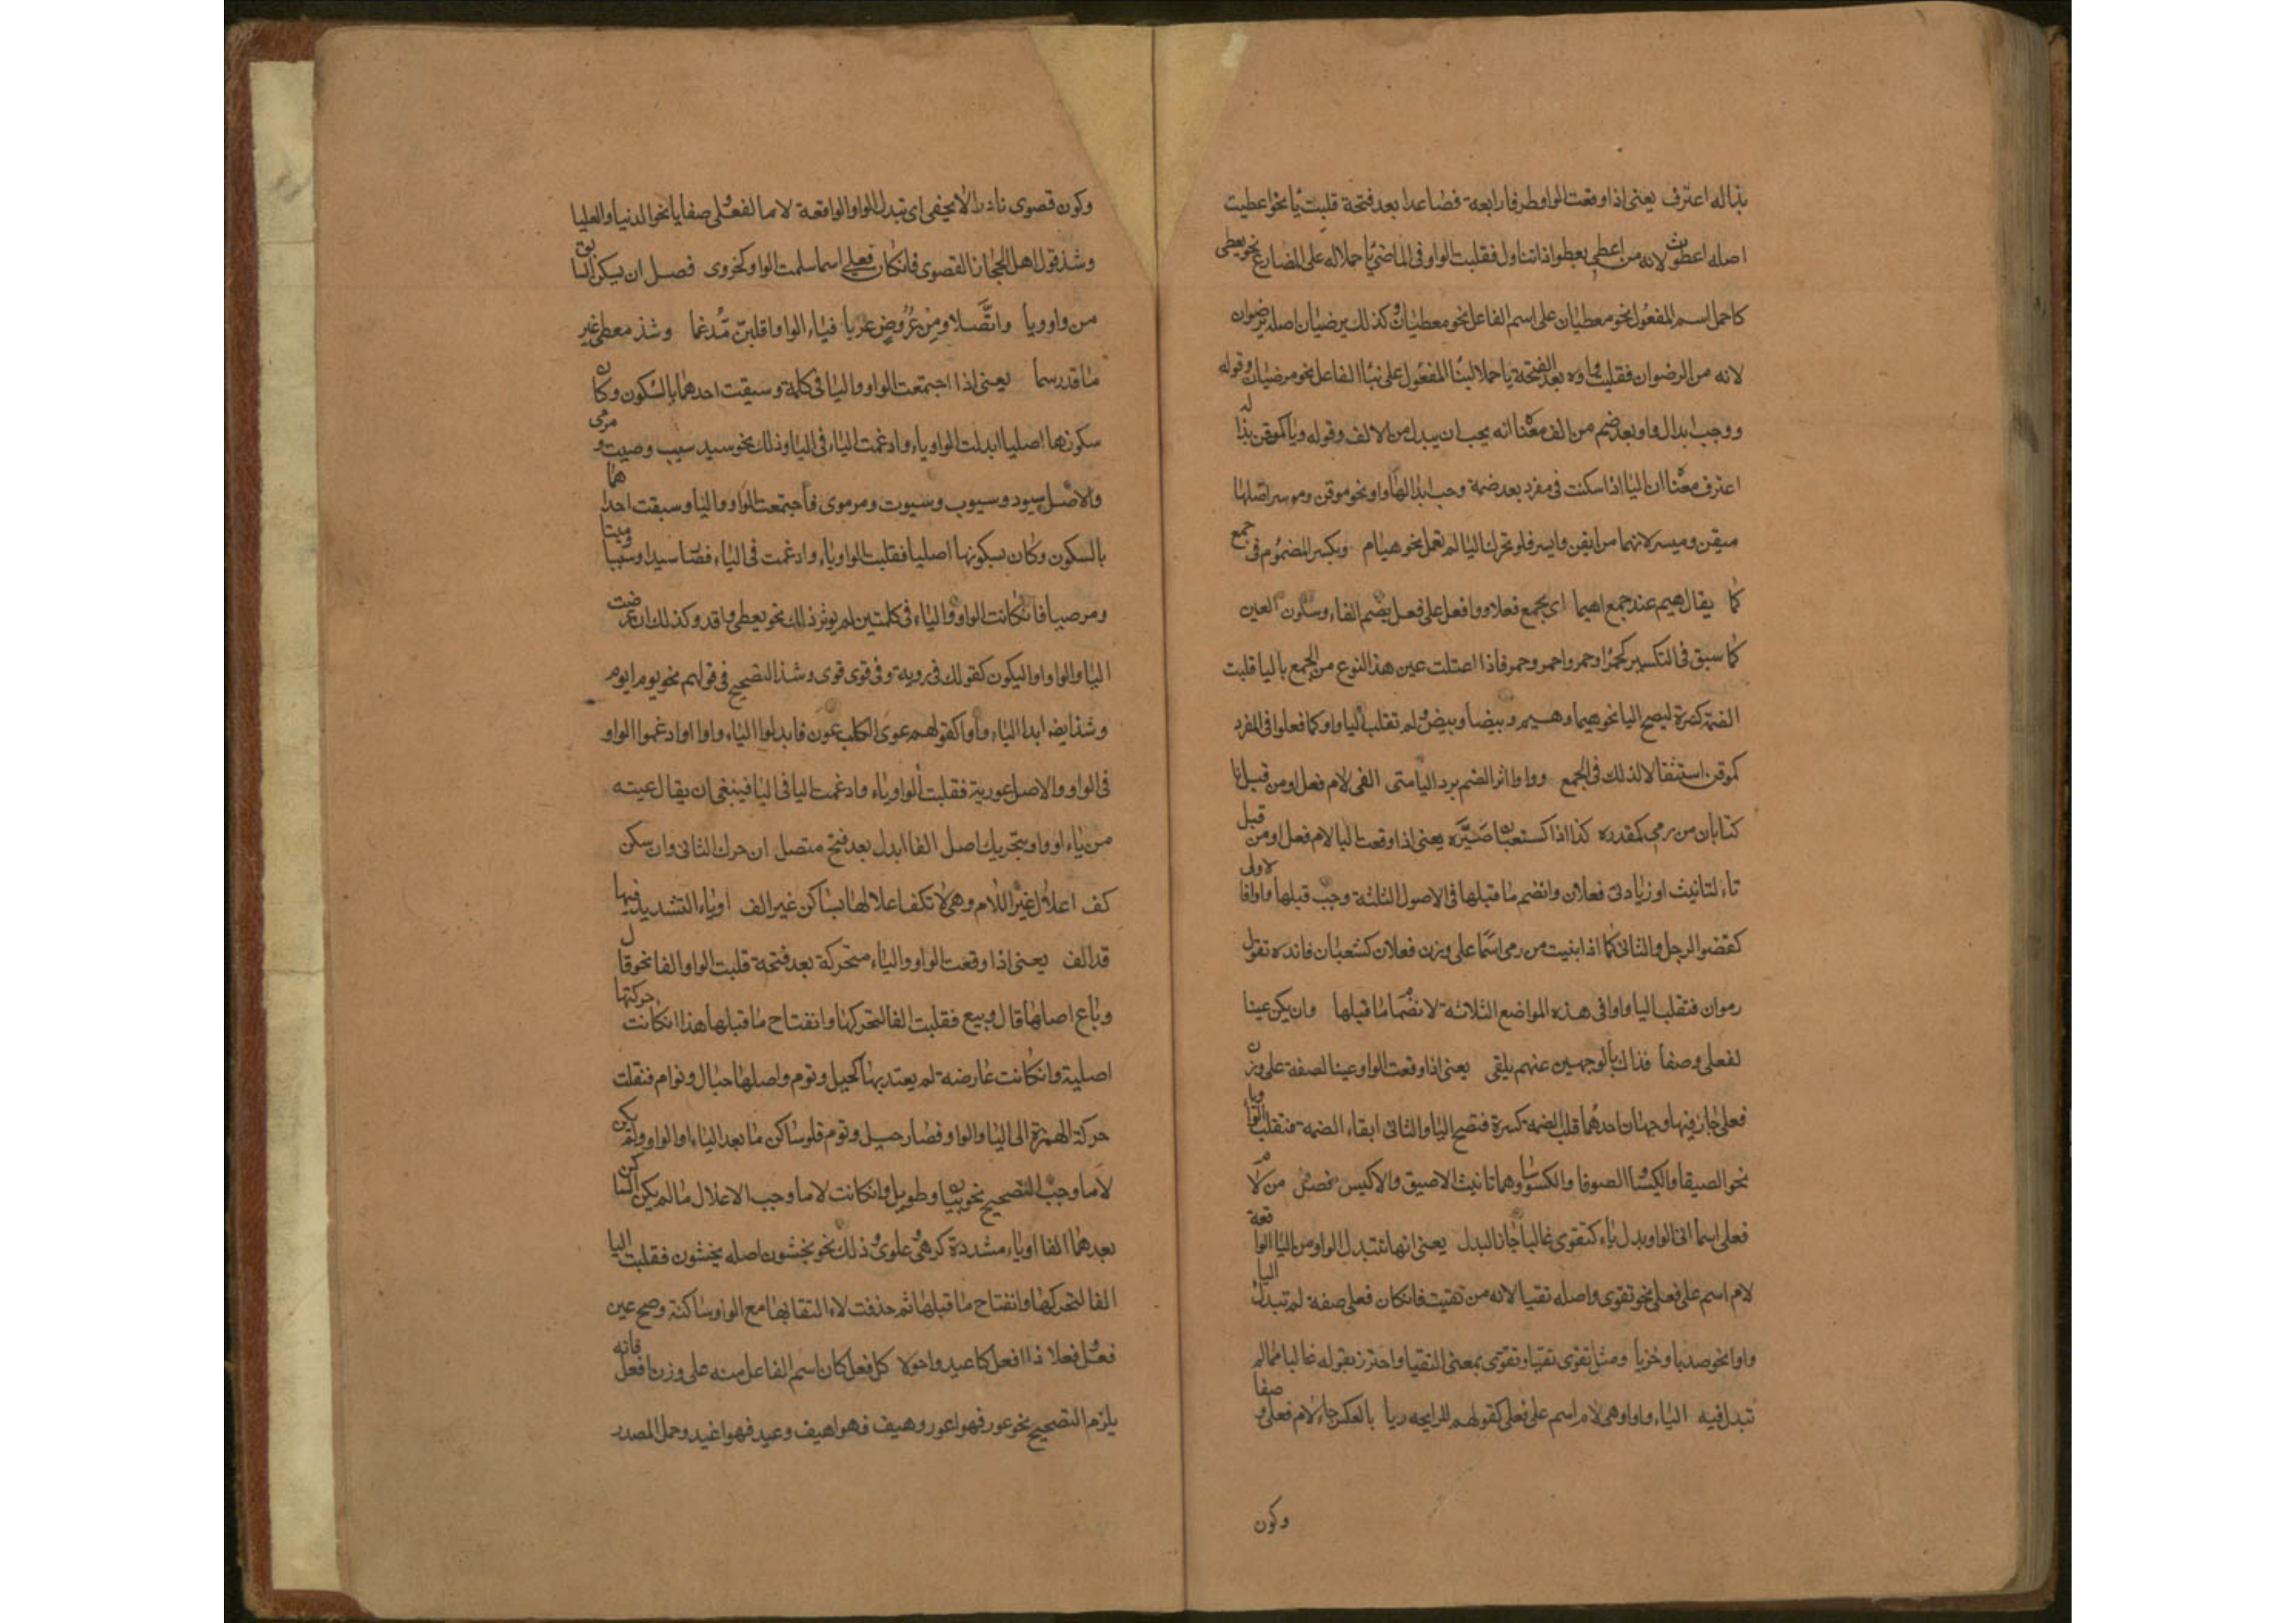 بذا له اعترف يعنى اذا وقعت الواو طرفا رابعة فصاعدا بعد فتحة قلبت يا نحو اعطيت
اصله اعطوت لانه من اعطى يعطو اذا تناول فقلبت الواو فى الماضى يا حملا له على المضارع نحو يعطى
كما حمل اسم المفعول نحو معطيان على اسم الفاعل نحو معطيان وكذلك يرضيان اصله يرضوان
لانه من الرضوان فقلبت واوه بعد الفتحة يا حملا لبنا المفعول على بنا الفاعل نحو مرضيان وقوله
ووجب ابدال واو بعد ضم من الف معناه انه يجب ان يبدل من الالف وقوله ويا كموقن بذا له
اعترف معناه ان اليا اذا سكنت فى مفرد بعد ضمة وجب ابدالها واوا نحو موقن وموسر اصلها
ميقن وميسر لانهما من ايقن وايسر فلو تحرك اليا لم تعل نحو هيام ويكسر المضموم فى جمع
كما يقال هيم عند جمع اهيما اى يجمع فعلاو وافعل على فعل بضم الفاء وسكون العين
كما سبق فى التكسير كحمرا وحمر واحمر وحمر فاذا اعتلت عين هذا النوع من الجمع باليا قلبت
الضمة كسرة ليصح اليا نحو هيما وهيم وبيضا وبيض ولم تقلب اليا واو كما فعلوا فى المفرد
كموقن استثقالا لذلك فى الجمع وواوا اثر الضم برد اليا متى الفى لام فعل او من قبل تا
كتا بان من رمى كمقدره كذا اذا كسبعان صيره يعنى اذا وقعت اليا لام فعل او من قبل
تاء لتانيث او زيادتى فعلان وانضم ما قبلها فى الاصول الثلثة وجب قبلها واوا فالاولى
كقضو الرجل والثانى كما اذا بنيت من رمى اسما على وزن فعلان كسبعان فانه تقول
رموان فتقلب اليا واوا فى هذه المواضع الثلاثة لانضما ما قبلها وان يكن عينا
لفعلى وصفا فذاك بالوجهين عنهم يلفى يعنى اذا وقعت الواو عينا لصفة على وزن
فعلى جاز فيها وجهان احدهما قلب الضمة كسرة فتصح اليا والثانى ابقاء الضمة فتقلب اليا واوا
نحو الضيقا والكيسا الضوقا والكوسا وهما تانيث الاضيق والاكيس فصل من لام
فعلى اسما اتى الواو بدل ياء كتقوى غالبا جا ذا البدل يعنى انها تبتدل الواو من اليا الواقعة
لام اسم على فعلى نحو تقوى واصله تقيا لانه من تقيت فان كان فعلى صفة لم تبدل اليا
واوا نحو صديا وخزيا ومثل تقوى تقيا وتقوى بمعنى التقيا واحترز بقوله غالبا مما لم
تبدل فيه الياء واوا وهى لام اسم على فعلى كقولهم للرايحه ريا بالعكس جاء لام فعلى وصفا
وكون
وكون قصوى نادرا لا يخفى اى تبدل الواو الواقعة لاما لفعلى صفا يا نحو الدنيا والعليا
وشذ قول اهل الحجاز القصوى فان كان فعلى اسما سلمت الواو كخزوى فصل ان يسكن السابق
من واو ويا واتصلا ومن عروض عريا فياء الواو اقلبن مدغما وشذ معطى غير
ما قد رسما يعنى اذا اجتمعت الواو واليا فى كلمة وسبقت احدهما بالسكون وكان
سكونها اصليا ابدلت الواو ياء وادغمت الياء فى اليا وذلك نحو سيد سيب وصيت ومرمى
والاصل سيود وسيوب وسيوت ومرموى فاجتمعت الواو واليا وسبقت احداهما
بالسكون وكان سكونها اصليا فقلبت الواو ياء وادغمت فى الياء فصا سيدا وسيبا وميتا
ومرصيا فان كانت الواو والياء فى كلمتين لم يوثر ذلك نحو يعطى واقد وكذلك ان عرضت
اليا والواو اوا ليكون كقولك فى رويه وفى قوى قوى وشذ التصحيح فى قولهم نحو يوم ايوم
وشذ ايضه ابدا الياء واوا كقولهم عوى الكلب عون فابدلوا الياء واوا وادغموا الواو
فى الواو والاصل عورية فقلبت الواو ياء وادغمت اليا فى اليا فينبغى ان يقال عيته
من ياء او واو بتحريك اصل الفا ابدل بعد فتح متصل ان حرك الثانى وان سكن
كف اعلال غير اللام وهى لا تكف اعلالها بساكن غير الف او ياء التشديد فيها
قد الف يعنى اذا وقعت الواو والياء متحركة بعد فتحة قلبت الواو الفا نحو قال
وباع اصلهما قال وبيع فقلبت الفا لتحركها وانفتاح ما قبلها هذا ان كانت حركتها
اصلية وان كانت عارضه لم يعتد بها كجيل وتوم واصلها جيال وتوام فنقلت
حركة الهمزة الى اليا والواو فصار جيل وتوم فلو سا كن ما بعد الياء او الواو ولم يكن
لاما وجب التصحيح نحو بيان وطويل وان كانت لاما وجب الاعلال ما لم يكن الساكن
بعدهما الفا او ياء مشددة كرمى وعلوى وذلك نحو يخشون اصله يخشيون فقلبت اليا
الفا لتحركها وانفتاح ما قبلها ثم حذفت لاء لتقائها مع الواو ساكنة وصح عين
فعل وفعلا ذا افعل كاغيد واحولا كل فعل كان اسم الفاعل منه على وزن افعل فانه
يلزم التصحيح نحو عور فهو اعور وهيف فهو اهيف وغيد فهو اغيد وحمل المصدر